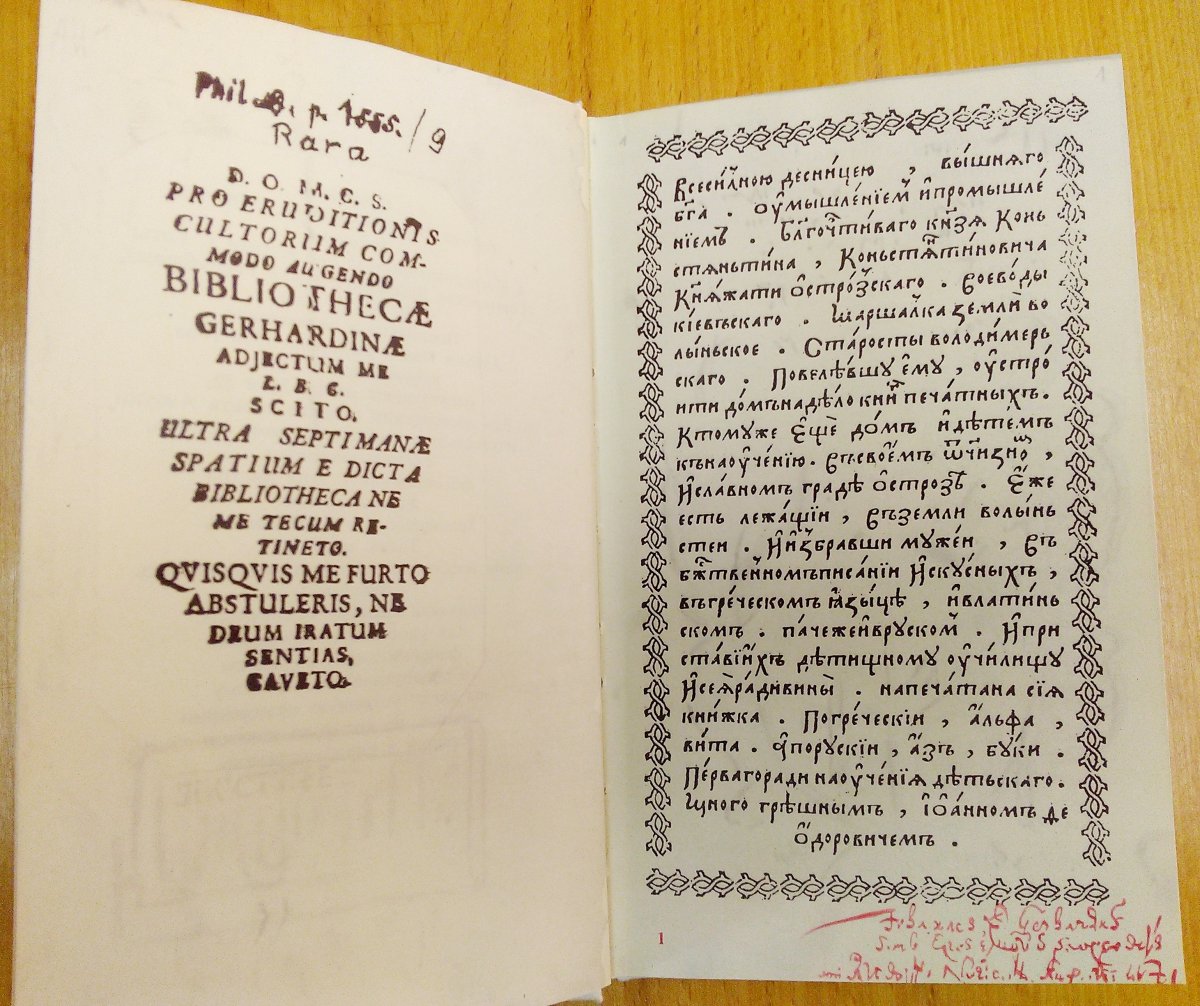 Phil. B. p. 1555. / 9
Rara
D. O. M. C. S.
PRO ERUDITIONIS
CULTORUM COM-
MODO AUGENDO
BIBLIOTHECÆ
GERHARDINÆ
ADJECTUM ME
L. B. C.
SCITO.
ULTRA SEPTIMANÆ
SPATIUM E DICTA
BIBLIOTHECA NE
ME TECUM RE-
TINETO.
QVISQVIS ME FURTO
ABSTULERIS, NE
DEUM IRATUM
SENTIAS,
CAVETO.
1
Всеси́лною десни́цею , вы́шнꙗго
бг҃а . оу҆мышле́нїемъ и҆промышле́
нїемъ . бл҃гочⷭ҇ти́ваго кнѕ҃ѧ Конь
стѧньти́на , Коньстѧⷩти́новича
Кнѧ́жати о҆стро́зскаго . воево́ды
кі́евъскаго . Маршалка земли̾ во
лы́ньское . Ста́росты володи́меръ
скаго . Повелѣ́вшу е҆му̀ , оу҆стро́
ити до́мъ надѣ́ло книⷢ печа́тныхъ.
Ктому́же е҆щѐ до́мъ и҆дѣ́темъ
къ наоу҆че́нїю . въ свое҆мъ ѿчизноⷨ ,
и҆сла́вномъ градѣ о҆строзѣ . е҆́же
есть лежа́щїи , въ земли волы́нь
стеи . И҆и҆збравши муже́и , въ
бжⷭ҇твенномъ писа́нїи и҆ску́сныхъ ,
въ гре́ческомъ ꙗ҆зы́цѣ , и҆влати́нь
скомъ . па́чежеи҆вруском . И҆при
ста́вїи҆хъ дѣтищному оу҆чи́лищу
И҆сеꙗ҆ра́ди вины̀ . напеча́тана сїꙗ
кни́жка . Погре́ческїи , а҆́льфа ,
ви́та . а҆порускїи , а҆́зъ , бу́ки .
Пе́рваго ради наоу҆че́нїꙗ дѣ́тьскаго.
Многогрѣ́шнымъ , і҆ѡ҆а́нномъ Ѳе
о҆́доровичемъ .
1